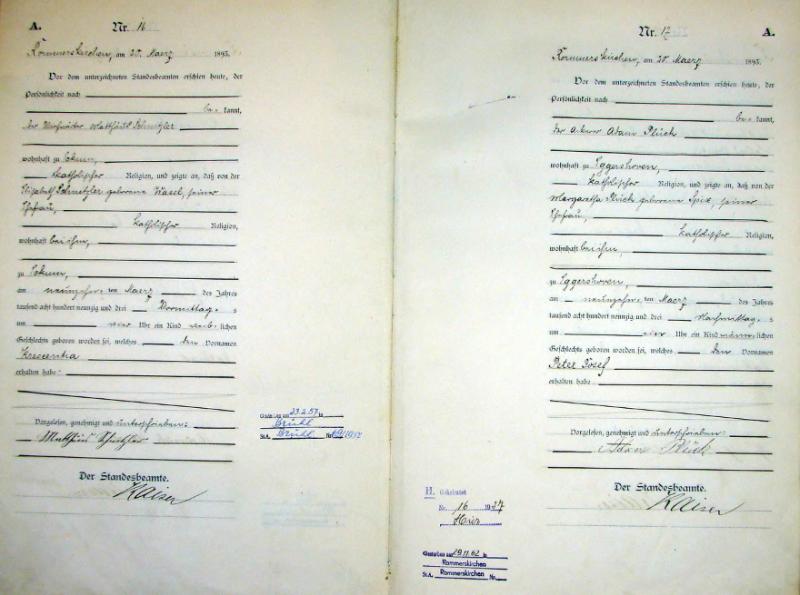 A. Nr. 16
Rommerskirchen, am 20. Maerz 1893.
Vor dem unterzeichneten Standesbeamten erschien heute, der
Persönlichkeit nach
be- kannt,
der Matthäus Schnitzler
wohnhaft zu Eckum,
katholischer Religion, und zeigte an, daß von der
Elisabeth Schnitzler geborene Nasel, seiner
Ehefrau,
katholischer Religion,
wohnhaft bei ihm,
zu Eckum,
am neunzehn- ten Maerz des Jahres
tausend acht hundert neunzig und drei Vormittag- s
um vier Uhr ein Kind weib- lichen
Geschlechts geboren worden sei, welches den Vornamen
Krescentia
erhalten habe
Vorgelesen, genehmigt und unterschrieben:
Der Standesbeamte.
Kaiser
Gestorben am 23.2.57 in
Brühl
StA. Brühl Nr.
Nr. 17 A.
Rommerskirchen, am 20. Maerz 1893.
Vor dem unterzeichneten Standesbeamten erschien heute, der
Persönlichkeit nach
be- kannt,
der Ackerer Adam Plück
wohnhaft zu Eggershoven,
katholischer Religion, und zeigte an, daß von der
Margaretha Plück geborene Spix, seiner
Ehefrau,
katholischer Religion,
wohnhaft bei ihm,
zu Eggershoven,
am neunzehn- ten Maerz des Jahres
tausend acht hundert neunzig und drei Nachmittag- s
um vier Uhr ein Kind männ- lichen
Geschlechts geboren worden sei, welches den Vornamen
Peter Josef
erhalten habe
Vorgelesen, genehmigt und unterschrieben:
Adam Plück
Der Standesbeamte.
Kaiser
H. Geheiratet
Nr. 16 1927
Gestorben am 29.11.62 in
Rommerskirchen
StA. Rommerskirchen Nr.